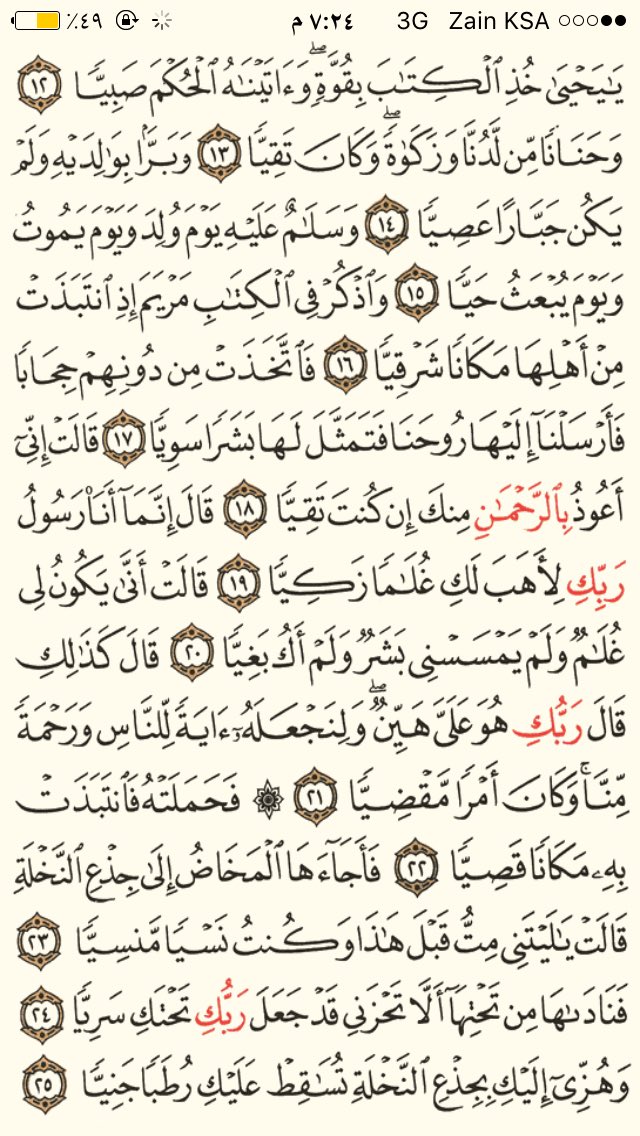 ٪٤٩ ٧:٢٤ م 3G Zain KSA
يَـٰيَحْيَىٰ خُذِ ٱلْكِتَـٰبَ بِقُوَّةٍۖ وَءَاتَيْنَـٰهُ ٱلْحُكْمَ صَبِيًّا ١٢
وَحَنَانًا مِّن لَّدُنَّا وَزَكَوٰةًۖ وَكَانَ تَقِيًّا ١٣ وَبَرًّۢا بِوَٰلِدَيْهِ وَلَمْ
يَكُن جَبَّارًا عَصِيًّا ١٤ وَسَلَـٰمٌ عَلَيْهِ يَوْمَ وُلِدَ وَيَوْمَ يَمُوتُ
وَيَوْمَ يُبْعَثُ حَيًّا ١٥ وَٱذْكُرْ فِى ٱلْكِتَـٰبِ مَرْيَمَ إِذِ ٱنتَبَذَتْ
مِنْ أَهْلِهَا مَكَانًا شَرْقِيًّا ١٦ فَٱتَّخَذَتْ مِن دُونِهِمْ حِجَابًا
فَأَرْسَلْنَآ إِلَيْهَا رُوحَنَا فَتَمَثَّلَ لَهَا بَشَرًا سَوِيًّا ١٧ قَالَتْ إِنِّىٓ
أَعُوذُ بِٱلرَّحْمَـٰنِ مِنكَ إِن كُنتَ تَقِيًّا ١٨ قَالَ إِنَّمَآ أَنَا۠ رَسُولُ
رَبِّكِ لِأَهَبَ لَكِ غُلَـٰمًا زَكِيًّا ١٩ قَالَتْ أَنَّىٰ يَكُونُ لِى
غُلَـٰمٌ وَلَمْ يَمْسَسْنِى بَشَرٌ وَلَمْ أَكُ بَغِيًّا ٢٠ قَالَ كَذَٰلِكِ
قَالَ رَبُّكِ هُوَ عَلَىَّ هَيِّنٌۖ وَلِنَجْعَلَهُۥٓ ءَايَةً لِّلنَّاسِ وَرَحْمَةً
مِّنَّاۚ وَكَانَ أَمْرًا مَّقْضِيًّا ٢١ ۞ فَحَمَلَتْهُ فَٱنتَبَذَتْ
بِهِۦ مَكَانًا قَصِيًّا ٢٢ فَأَجَآءَهَا ٱلْمَخَاضُ إِلَىٰ جِذْعِ ٱلنَّخْلَةِ
قَالَتْ يَـٰلَيْتَنِى مِتُّ قَبْلَ هَـٰذَا وَكُنتُ نَسْيًا مَّنسِيًّا ٢٣
فَنَادَىٰهَا مِن تَحْتِهَآ أَلَّا تَحْزَنِى قَدْ جَعَلَ رَبُّكِ تَحْتَكِ سَرِيًّا ٢٤
وَهُزِّىٓ إِلَيْكِ بِجِذْعِ ٱلنَّخْلَةِ تُسَـٰقِطْ عَلَيْكِ رُطَبًا جَنِيًّا ٢٥